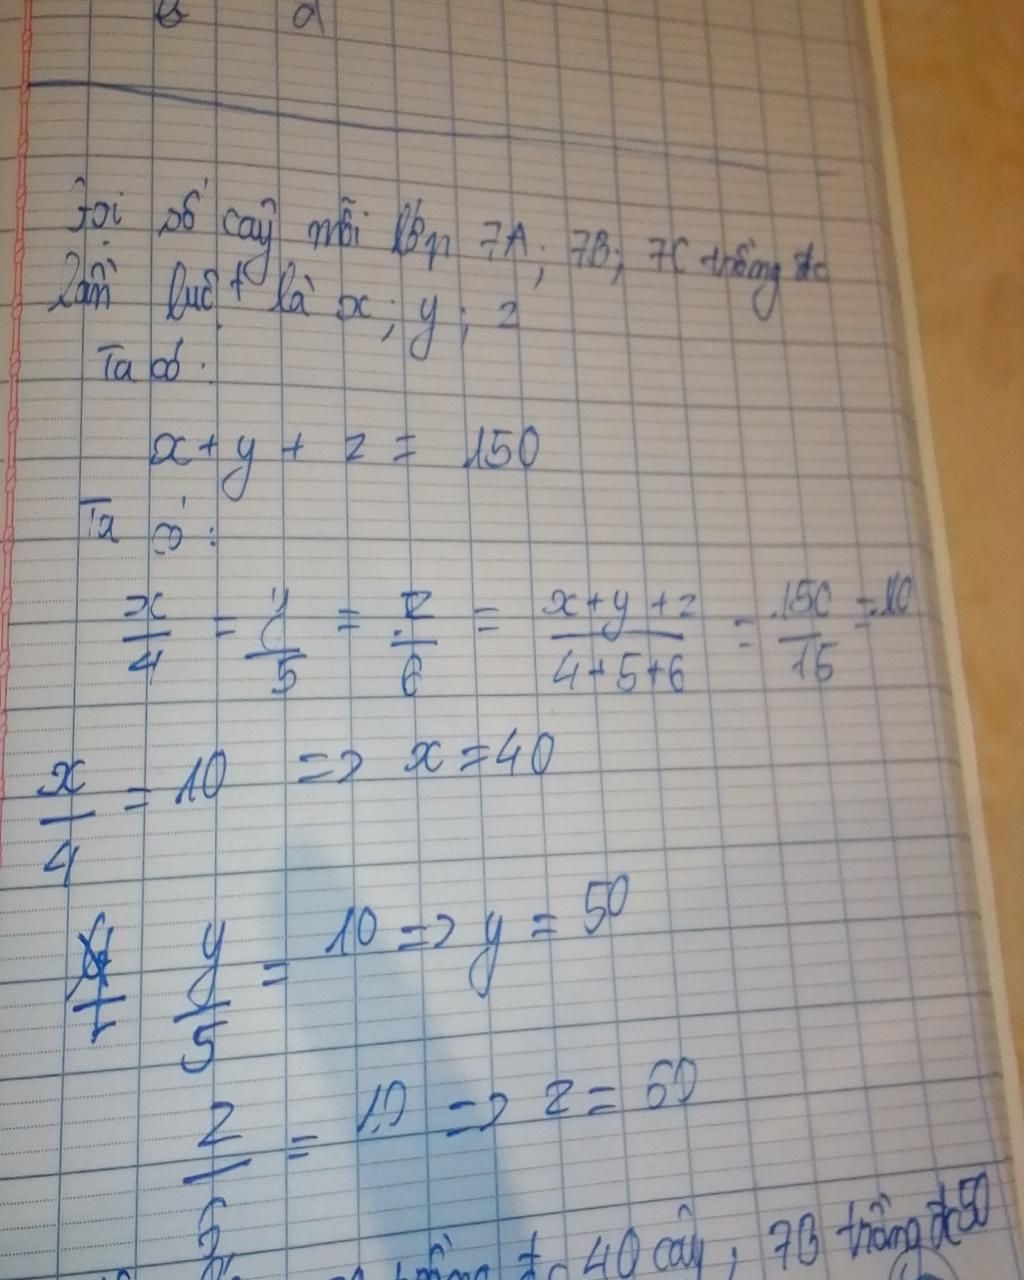 Gọi số cây mỗi lớp 7A; 7B; 7C trồng đc
lần luợt là x; y; z
Ta có:
x + y + z = 150
Ta có:
x/4 = y/5 = z/6 = x+y+z/4+5+6 = 150/15 = 10
x/4 = 10 => x = 40
y/5 = 10 => y = 50
z/6 = 10 => z = 60
trồng đc 40 cây, 7B trồng đc 50